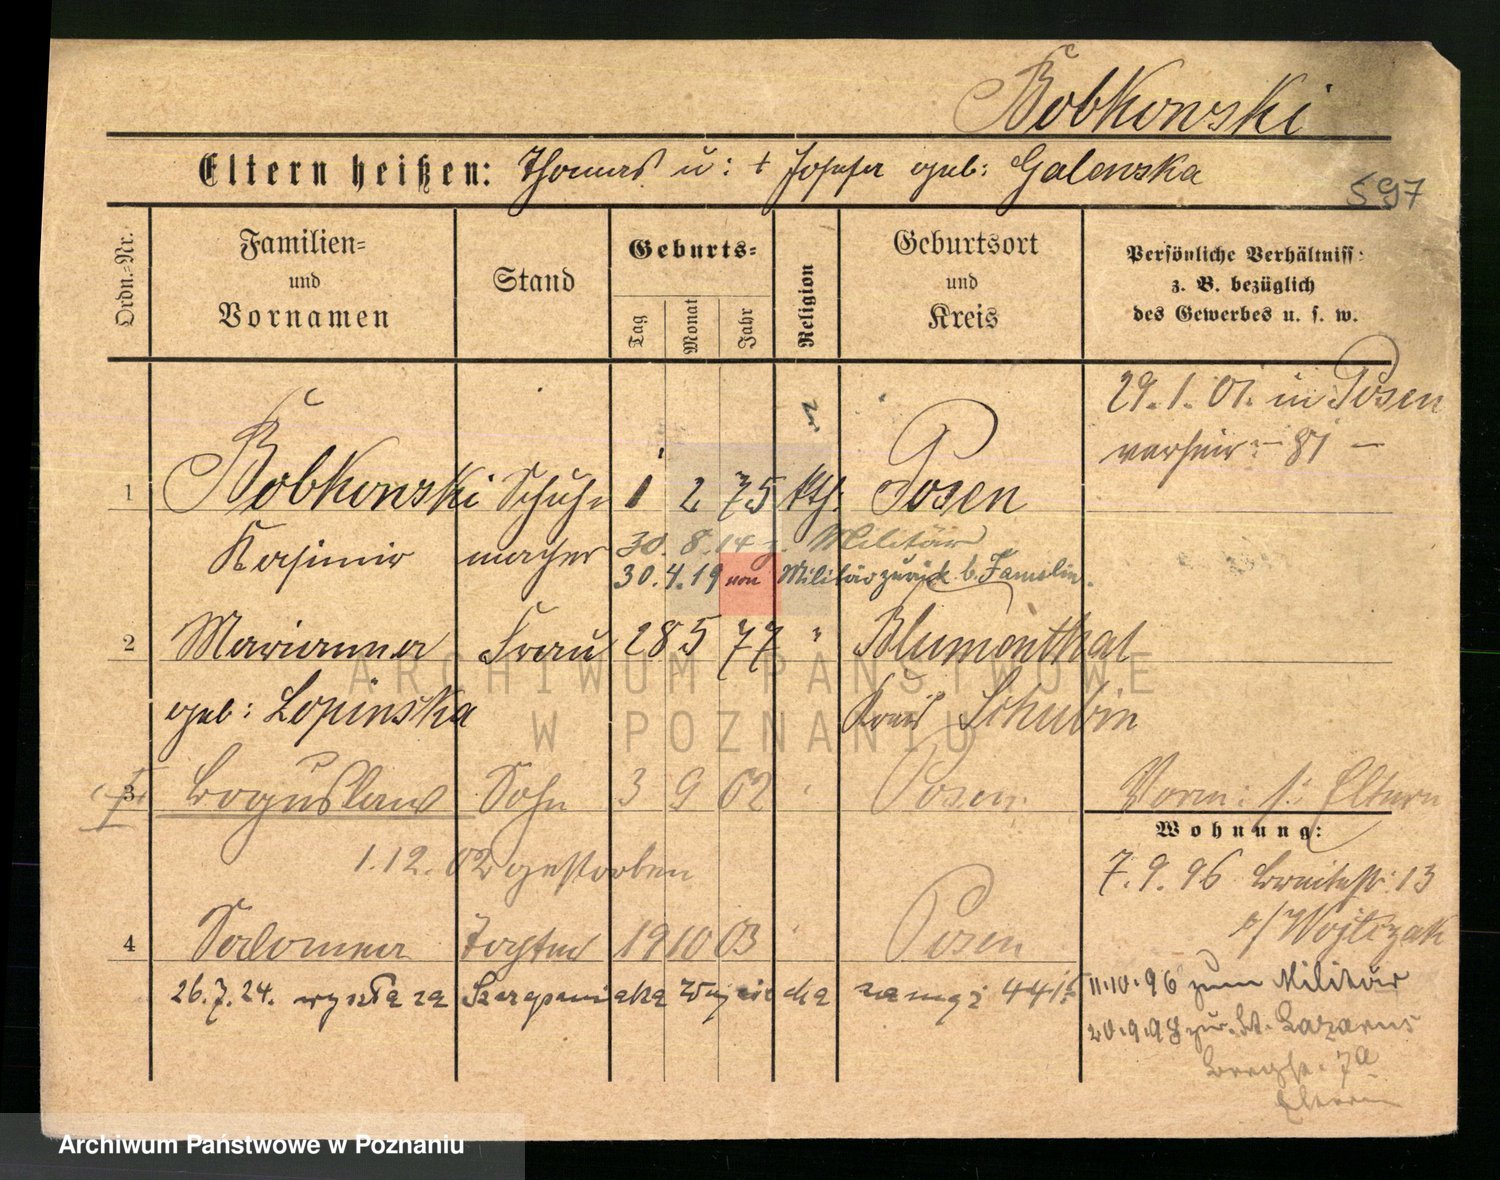 Bobkowski
Eltern heißen: Thomas u: + Josefa geb: Galewska
597
Ordn.-Nr.
Familien- und Vornamen
Stand
Geburts-
Tag
Monat
Jahr
Religion
Geburtsort und Kreis
Persönliche Verhältniss: z. B. bezüglich des Gewerbes u. s. w.
29. 1. 01. in Posen
verheir: 81
1 Bobkowski Schuh- 1 2 75 kth. Posen
Kasimir macher 30. 8. 14 z. Militär
30. 4. 19 von Militär zurück b. Familie.
2 Marianna Frau 28 5 77 " Blumenthal
geb: Lopinska Kreis Schubin
3 Boguslaw Sohn 3 9 02 " Posen.
Vorm: s: Eltern
1. 12. 02 gestorben
Wohnung:
7. 9. 96 Breitestr: 13
b/ Wojtczak
4 Salomea Tochter 19 10 03 " Posen
26. 7. 24. wyszła za Szczepaniaka Wojciecha
11. 10. 96 zum Militär
20. 9. 98 zur. St. Lazarus
7a
Eltern
ARCHIWUM PAŃSTWOWE
W POZNANIU
Archiwum Państwowe w Poznaniu